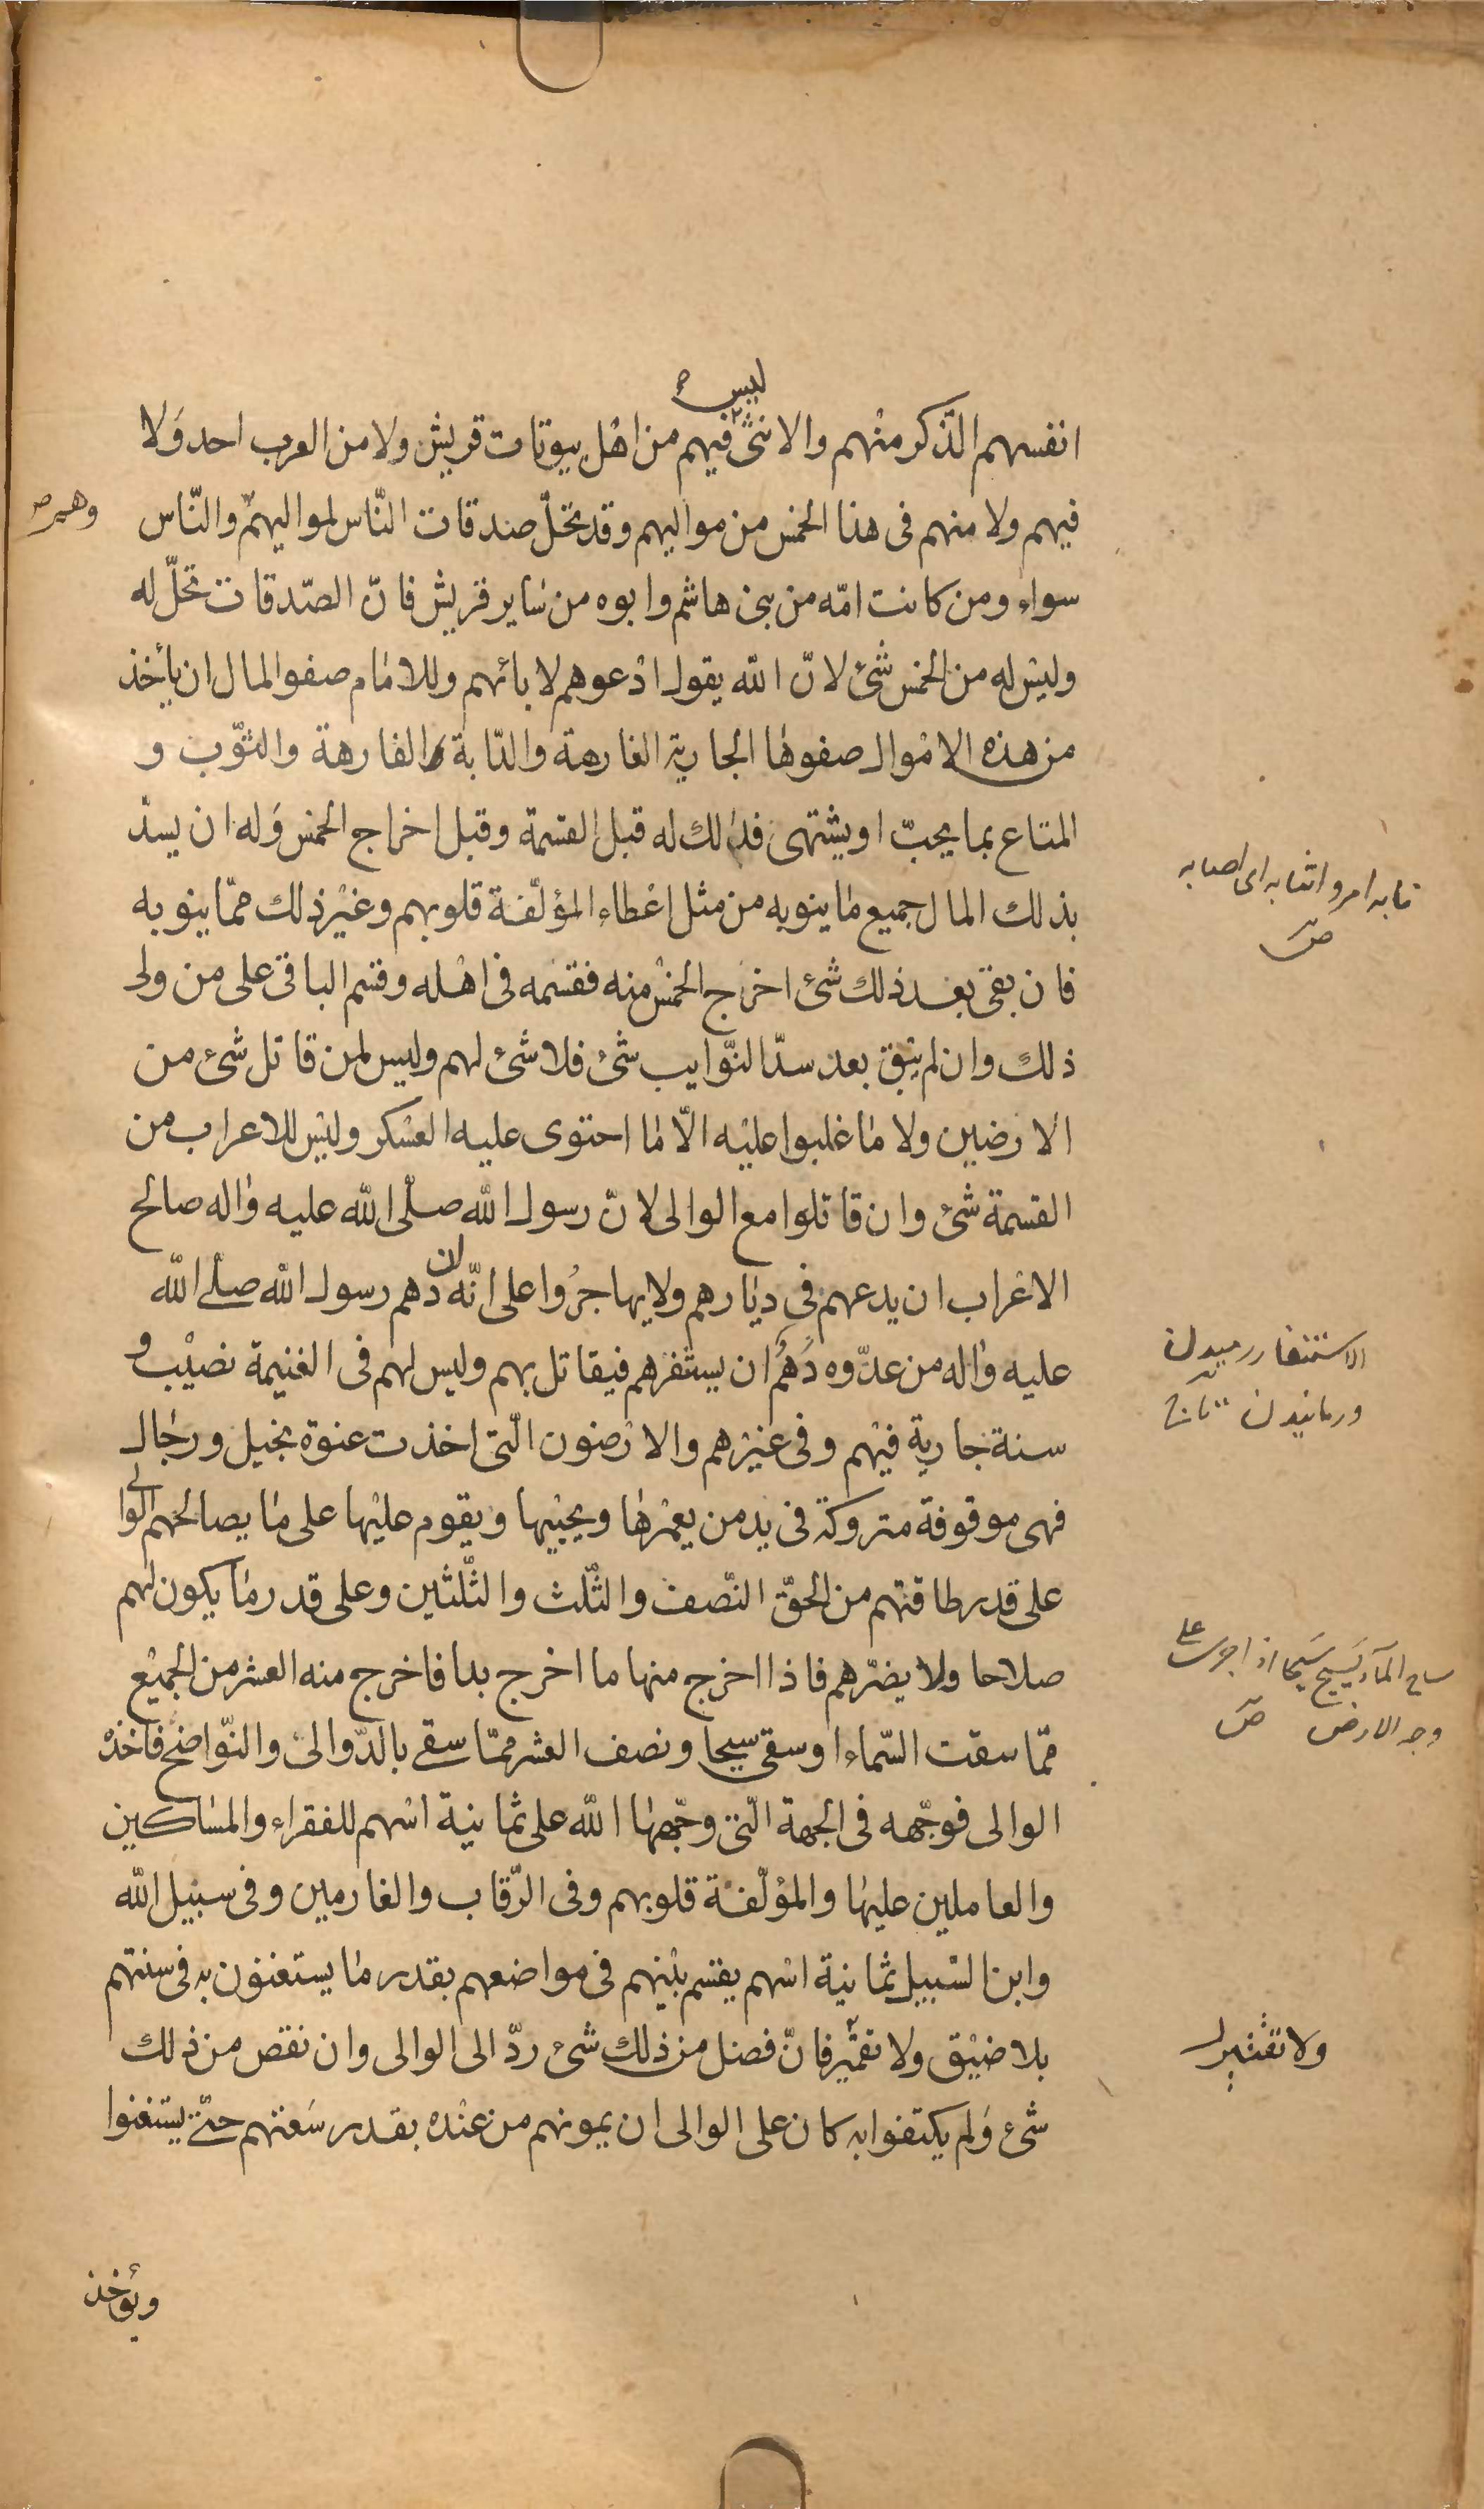 ليس
انفسهم الذّكر منهم والانثى فيهم من اهل بيوتات قريش ولا من العرب احد وَلا
فيهم ولا منهم فى هذا الخمس من مواليهم وقد تحلّ صدقات النّاس لمواليهم والنّاس
وهم
سواء ومن كانت امّه من بنى هاشم وابوه من ساير قريش فانّ الصّدقات تحلّ له
وليس له من الخمس شئ لانّ اللّه يقول ادْعوهم لابائهم وللامام صفو المال ان يأخذ
من هذه الاموال صفوها الجارية الفارهة والدّابة الفارهة والثّوب و
المتاع بما يحبّ او يشتهى فذالك له قبل القسمة وقبل اخراج الخمس وَله ان يسدّ
نابه امر وانتابه اى اصابه
ص
بذلك المال جميع ما ينوبه من مثل اعْطاء المؤلّفة قلوبهم وغيْر ذلك ممّا ينوبه
فان بقى بعد ذلك شئ اخرج الخمس منه فقسمه فى اهْله وقسم الباقى على من ولى
ذلك وان لم يبق بعد سدّ النّوايب شئ فلا شئ لهم وليس لمن قاتل شئ من
الارضين ولا ما غلبوا عليْه الّا ما احتوى عليه العسْكر وليْس للاعراب من
القسمة شئ وان قاتلوا مع الوالى لانّ رسول اللّه صلّى اللّه عليه واله صالح
الاعْراب ان يدعهم فى ديارهم ولا يهاجرُوا على انّه ان دهم رسول اللّه صلّى اللّه
عليه واله من عدّوه دَهْمُ ان يستفزهم فيقاتل بهم وليس لهم فى الغنيمة نصيْب و
الاستنفار رميدن
ورمانيدن تاج
سنة جارية فيهم وفى غيْرهم والارْضون الّتى اخذت عنوة بخيل ورجال
فهى موقوفة متروكة فى يد من يعمْرها ويحْييها ويقوم عليْها على ما يصالحهم الوالى
على قدر طاقتهم من الحقّ النّصف والثّلث والثّلثين وعلى قدر ما يكون لهم
صلاحا ولا يضرّهم فاذا اخرج منها ما اخرج بدا فاخرج منه العشر من الجميْع
ساح المآء يَسيح سَيحا اذا جرى على
وجه الارض ص
ممّا سقت السّماء او سقى سيحا ونصف العشر ممّا سقى بالدّوالى والنّواضح فاخذْ
الوالى فوجّهه فى الجهة الّتى وجّهها اللّه على ثمانية اسْهم للفقراء والمساكين
والعاملين عليها والمؤلّفة قلوبهم وفى الرّقاب والغارمين وفى سبيْل اللّه
وابن السّبيل ثمانية اسْهم يقسم بيْنهم فى مواضعهم بقدر ما يستغنون به فى سنتهم
بلا ضيْق ولا تقتير فانّ فضل من ذلك شئ ردّ الى الوالى وان نقص من ذلك
ولا تقتير
شئ وَلم يكتفوا به كان على الوالى ان يمونهم من عنْده بقدر سَعتهم حتّى يستغنوا
ويؤخذ